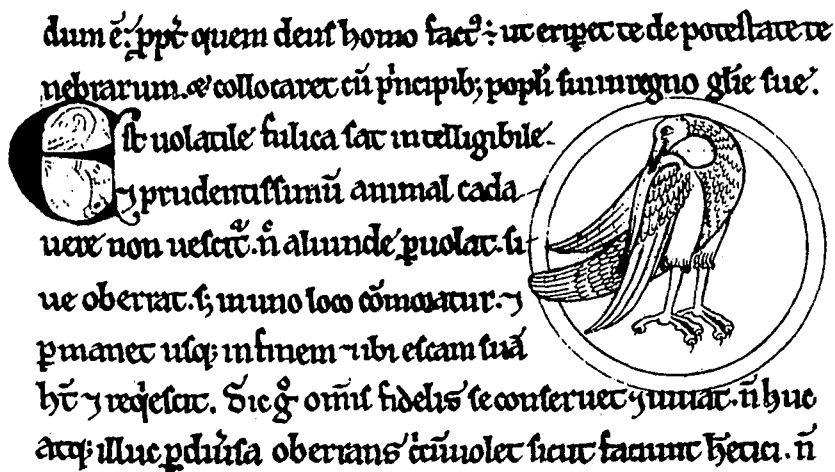 dum ē. ꝓpt̄ quem deuſ homo factꝰ: ut eriperet te de poteſtate te
nebrarum. & collocaret cū p̄ncipib; popl̄i ſui in regno gl̄ie ſue.
Eſt uolatile fulica ſat intelligibile
⁊ prudentiſſimū animal cada
uere non ueſcit᷑. n̄ aliunde ꝑuolat. ſi
ue oberrat. ſ; in uno loco cōmorat᷑. ⁊
ꝑmanet uſq; in finem ⁊ ubi eſcam ſuā
ht̄ ⁊ reqͥeſcit. Sic gͦ om̄iſ fidelis ſe conſeruet ⁊ uiuat. n̄ huc
atq; illuc ꝑ diu̾ſa oberrans circūuolet ſicut faciunt h̄etici. n̄